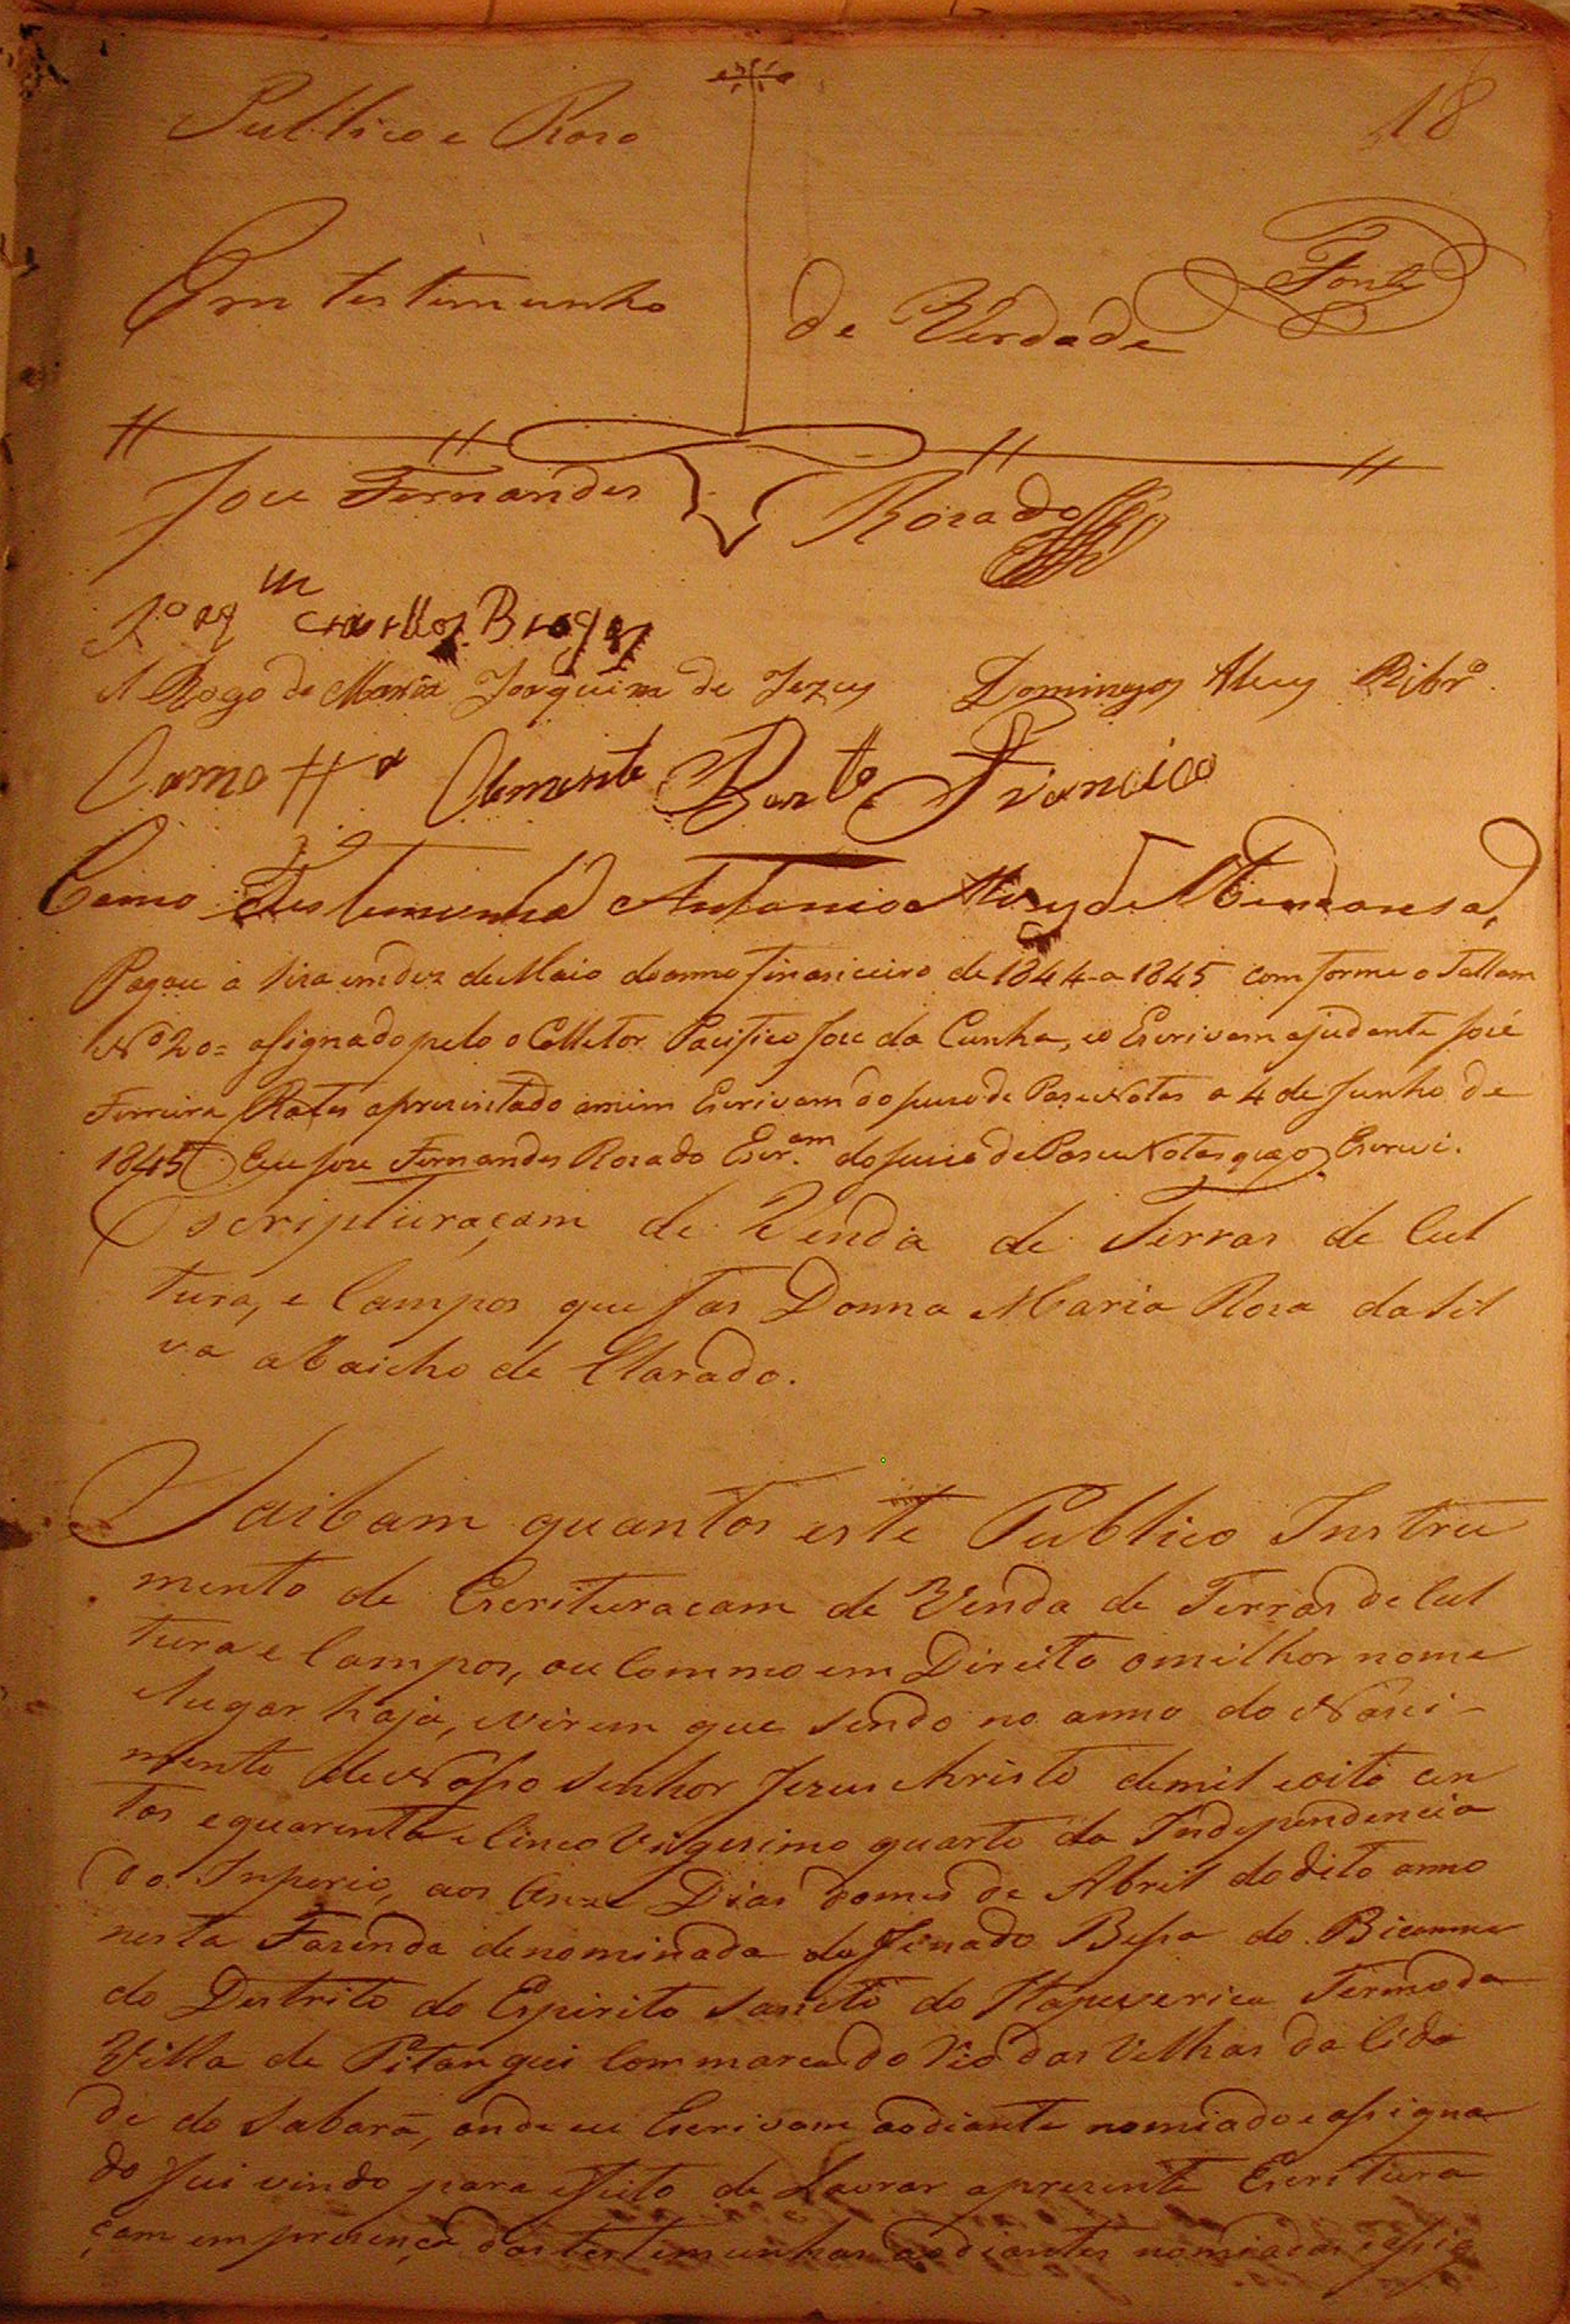 18
Publico e Raso
Em testemunho de Verdade
Fontz
Joze Fernandes Rozado
A Rogo de Maria Joaquina de Jezus Domingos Alves Ribrº.
Como Clemente Francico
Como Testemunha Antonio Alves de Mendonsa,
Pagou a Siza em dez de Maio do anno finansceiro de 1844 a 1845 com forme o Tallam
Nº 20= asignado pelo o Colletor Pacifico Joze da Cunha, e o Escrivam ajudante José
Ferreira Rates aprezintado amim Escrivam do Juizo de Paz e Notas a 4 de Junho de
1845 Eu Joze Fernandes Rozado Escr.am do Juizo de Paz e Notas que o Escrevi.
Escripturaçam de Venda de Terras de Cul
tura, e Campos que fas Donna Maria Roza da Sil
va abaicho de Clarado.
Saibam quantos este Publico Instru
mento de Escrituracam de Venda de Terras de Cul
tura e Campos, ou Commo em Direito o milhor nome
e lugar haja, virem que sendo no anno do Nasci-
mento de Nosso Senhor Jezus Christo de mil e oito cen
tos e quarenta e Cinco Vigesimo quarto da Independencia
do Inperio, aos Dias do mes de Abril do dito anno
nesta Fazenda denominada do
do Destrito do Espirito Sancto do Itapeserica Termo da
Villa de Pitangui Commarca do Rio das Velhas da Cida
de do Sabará, onde eu Escrivam aodiante nomiado e asigna
do fui vindo para efeito de Lavrar a prezente Escritura
çam em prezença das testemunhas aodiantes nomiadas e asig